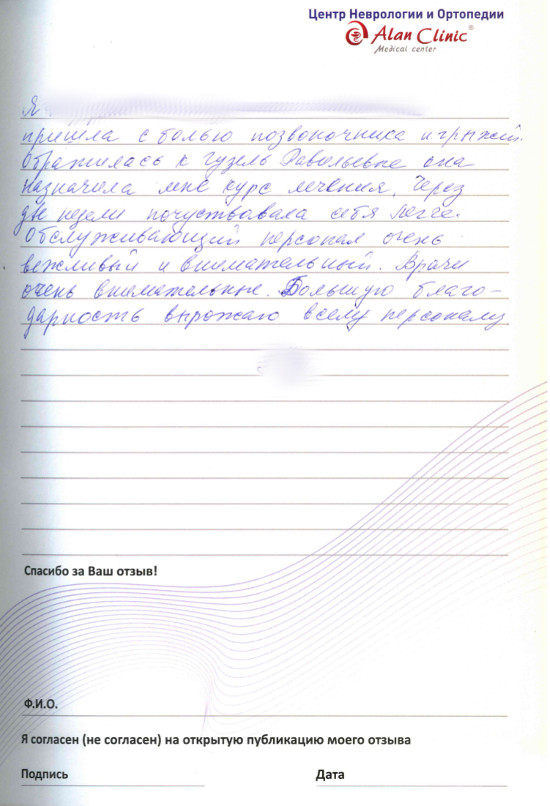 Центр Неврологии и Ортопедии
Alan Clinic®
Medical center
Я
пришла с болью позвоночника и грыжей.
Обратилась к Гузель Равильевне она
назначила мне курс лечения. Через
две недели почуствовала себя легче.
Обслуживающий персонал очень
вежливый и внимательный. Врачи
очень внимательные. Большую благо-
дарность вырожаю всему персоналу
Спасибо за Ваш отзыв!
Ф.И.О.
Я согласен (не согласен) на открытую публикацию моего отзыва
Подпись Дата